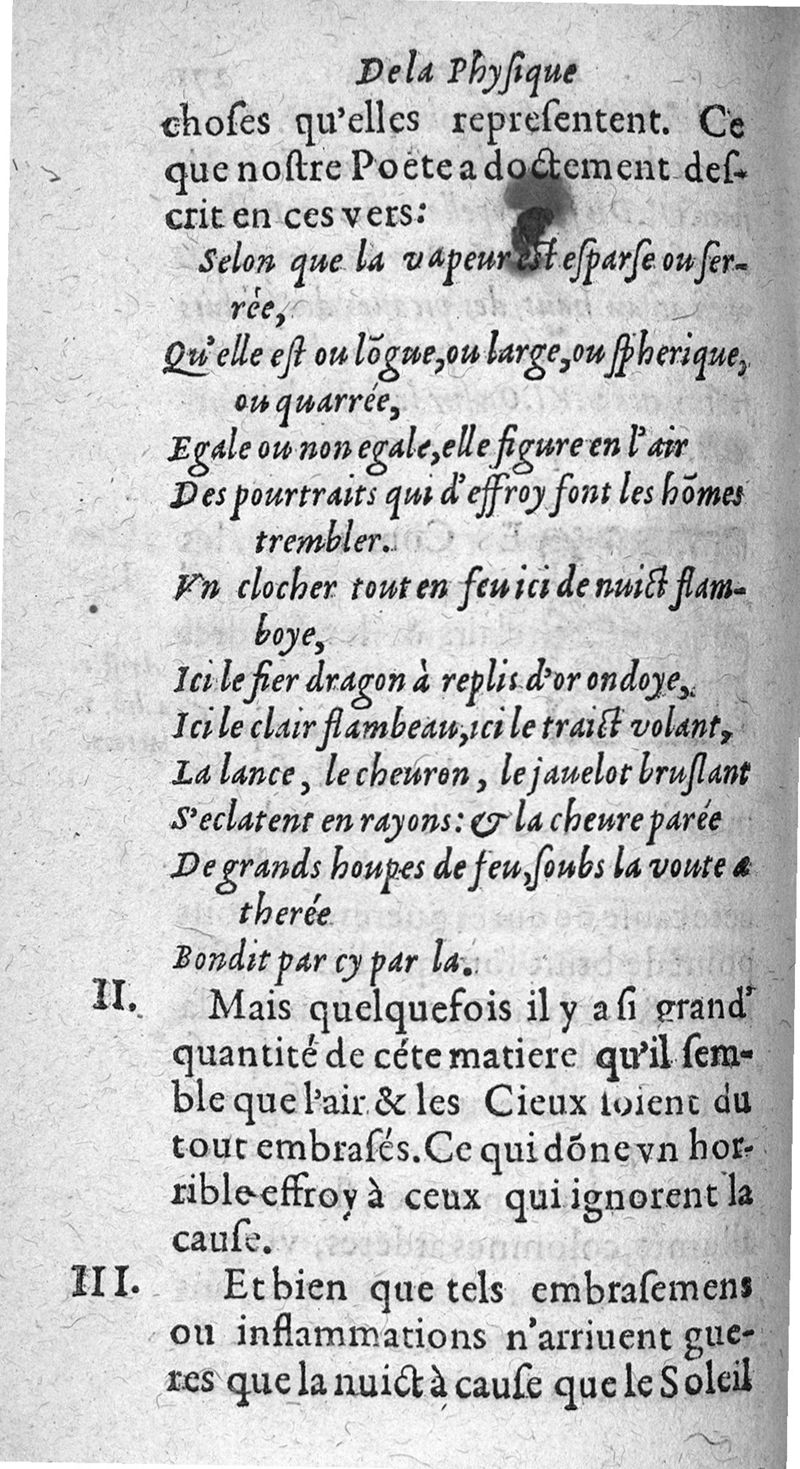 De la Phyſique
choſes qu'elles repreſentent. Ce
que noſtre Poëte a doctement deſ-
crit en ces vers:
Selon que la vapeur eſt eſparſe ou ſer-
rée,
Qu'elle eſt ou lõgue, ou large, ou ſpherique,
ou quarrée,
Egale ou non egale, elle figure en l'air
Des pourtraits qui d'effroy font les hõmes
trembler.
Vn clocher tout en feu ici de nuict flam-
boye,
Ici le fier dragon à replis d'or ondoye,
Ici le clair flambeau, ici le traict volant,
La lance, le cheuron, le jauelot bruſlant
S'eclatent en rayons: & la cheure parée
De grands houpes de feu, ſoubs la voute æ
therée
Bondit par cy par la.
II. Mais quelquefois il y a ſi grand'
quantité de céte matiere qu'il ſem-
ble que l'air & les Cieux ſoient du
tout embraſés. Ce qui dõne vn hor-
rible effroy à ceux qui ignorent la
cauſe.
III. Et bien que tels embraſemens
ou inflammations n'arriuent gue-
res que la nuict à cauſe que le Soleil